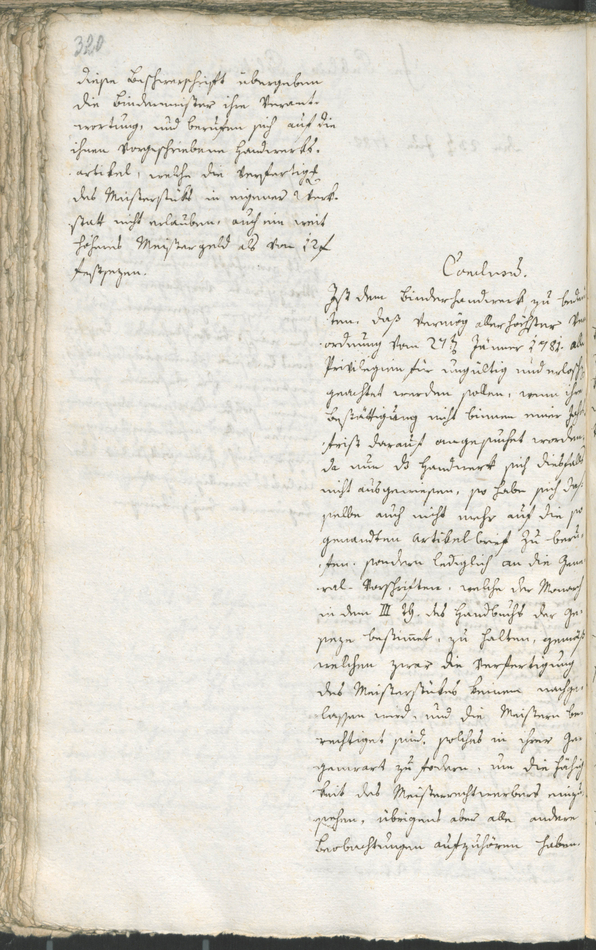 320
diese Beschwerschrift übergeben
die Bindermeister ihre Verant-
wortung, und berufen sich auf die
ihnen vorgeschriebene Handwerks-
artikel, welche die Verfertigg
des Meisterstüks in eigener Werk-
statt nicht erlauben, auch ein weit
höheres Meistergeld als von 12 f
festsezen.
Conclusum.
Ist dem Binderhandwerk zu bedeu
ten, daß vermög allerhöchster Ver
ordnung vom 27t Jänner 1782. alle
Privilegien für ungültig und erlosch
geachtet werden sollen, wenn ihre
Bestättigung nicht binnen einer Jahrs
frist darauf angesuchet worden,
da nun ds Handwerk sich diesfalls
nicht ausgewiesen, so habe sich das
selbe auch nicht mehr auf die so
genandten Artikelbrief zu beru-
fen, sondern lediglich an die Gene
ral-Vorschriften, welche der Monarch
in dem III Th. des Handbuchs der Ge-
seze bestimmet, zu halten, gemäß
welchen zwar die Verfertigung
des Meisterstükes keinem nachge-
lassen wird, und die Meistern be
rechtiget sind, solches in ihrer Ge-
genwart zu fodern, um die Fähig
keit des Meisterrechtwerbers einzu
sehen, übrigens aber alle andere
Beobachtungen aufzuhören haben.